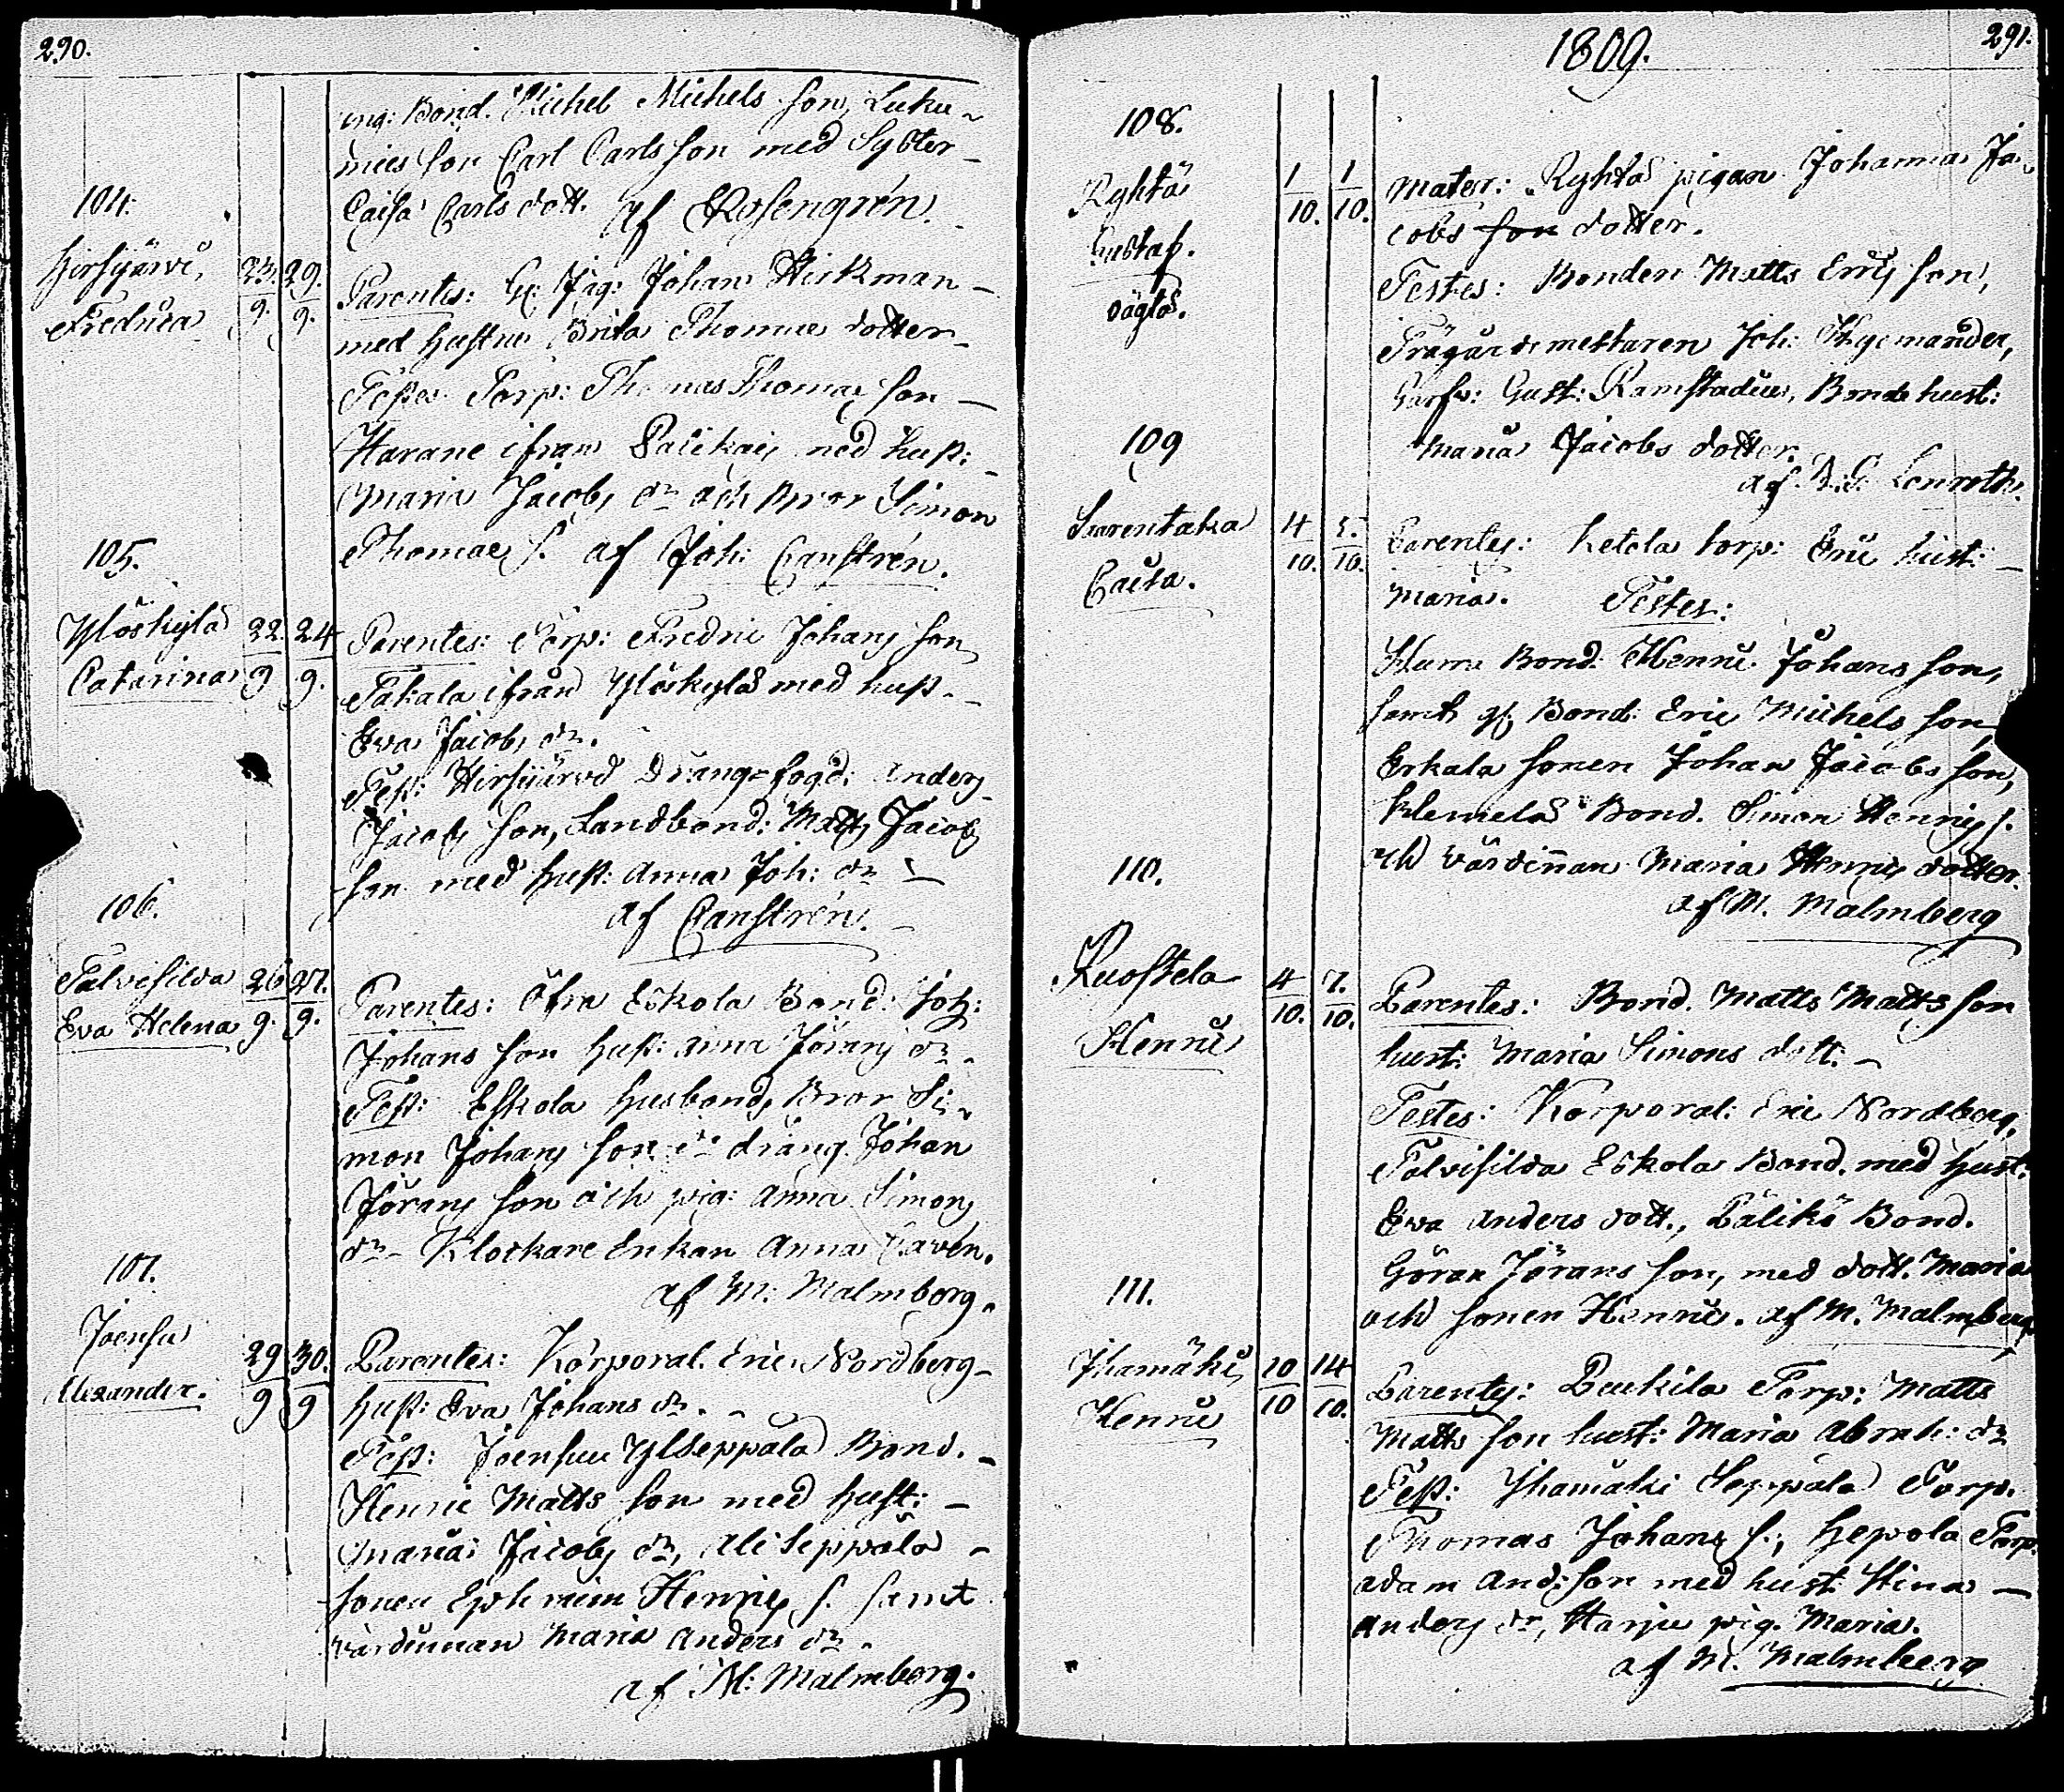 290.
ung: Bond. Michel Michels son, Luku-
mies son Carl Carls son med Syster
Caisa Carls dott. af Rosengrén.
104.
Hirsijärvi,
Fredrica
23. 29.
9. 9.
Parentes: Johan Hickman
med Hustru Brita Thomae dotter
Testes: Torp: Thomas Thomae son
Harane ifrån med hust:
Maria Jacobs dr och Bror Simon
Thomae s. af Joh: Canstrén.
105.
Ylöskylä
Catarina
22. 24
9 9.
Parentes: Torp: Fredric Johans son
Takala ifrån Ylöskylä med hust
Eva Jacobs dr.
Test: Hirsijärvi Drängefogd: Anders
Jacobs son, Landbond: Matts Jacobs
son med Hust: Anna Joh: dr
af Canstrén.
106.
Talvisilda
Eva Helena
26 27.
9. 9.
Parentes: Öfra Eskola Bond: Joh:
Johans son Hust: Anna Jörans dr
Test: Eskola Husbond, Bror Si-
mon Johans son dräng Johan
Jörans son och pig: Anna Simons
dr Klockare Enkan Anna Cavén.
af M: Malmberg.
107.
Joensu
Alexander.
29 30.
9 9
Parentes: Korporal. Eric Nordberg
Hust: Eva Johans dr.
Test: Joensuu Yliseppälä Bond.
Henric Matts son med Hust:
Maria Jacobs dr, Aliseppälä
sonen Ephraim Henrics s. samt
värdinnan Maria Anders dr.
af M: Malmberg.
1809.
291.
108.
Ryhtä
Gustaf.
oägta.
1 1
10. 10.
Mater: Ryhtä pigan Johanna Ja-
cobs son dotter.
Testes: Bonden Matts Erics son,
Trägårdsmestaren Joh: Hygemander,
Gust: Ramstadius, Bonde hust:
Maria Jacobs dotter.
af Lenroth.
109
Saarentaka
Caisa.
4 5.
10. 10.
Parentes: Ketola torp: Eric hust:
Maria. Testes:
Bond: Henric Johans son,
samt Bond: Eric Michels son,
Erkala sonen Johan Jacobs son,
Klemelä Bond. Simon Henrics s.
och värdinnan Maria Henrics dotter.
af M. Malmberg
110.
Ruostela
Henric
4 7.
10. 10.
Parentes: Bond. Matts Matts son
hust: Maria Simons dott:
Testes: Korporal: Eric Nordberg,
Talvisilda Eskola Bond. med Hust.
Eva Anders dott., Pälikö Bond.
Göran Jörans son, med dott. Maria
och sonen Henric. af M. Malmberg
111.
Ihamäki
Henric
10 14
10 10.
Parentes: Peukila Torp: Matts
Matts son hust: Maria Abrah: dr
Test: Ihamäki Seppälä Torp.
Thomas Johans s., Hepola Torp.
Adam And: son med hust Stina
Anders dr, Harju pig. Maria.
af M. Malmberg